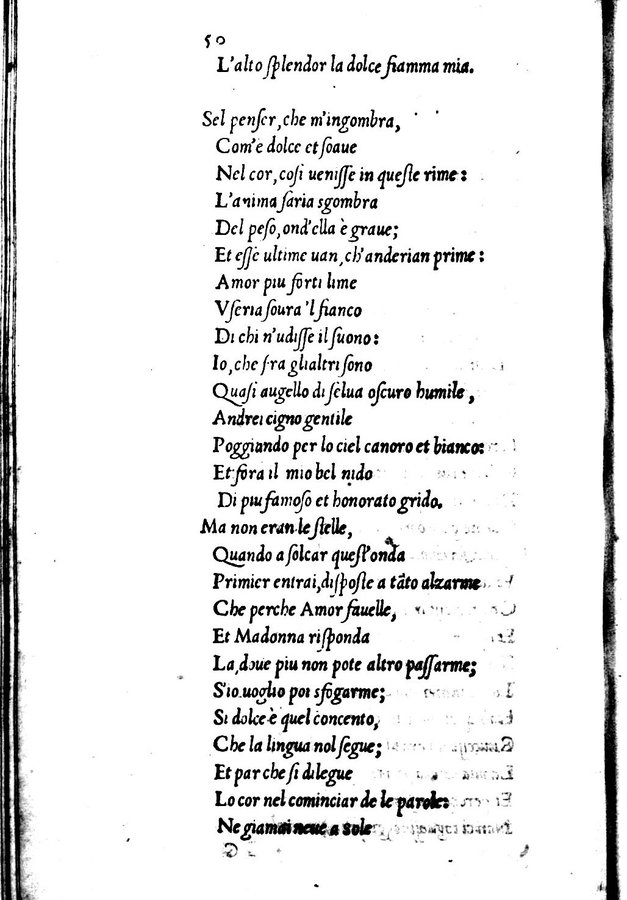 50
L'alto splendor la dolce fiamma mia.
Sel penser, che m'ingombra,
Com'e dolce et soaue
Nel cor, cosi uenisse in queste rime:
L'anima saria sgombra
Del peso, ond'ella è graue;
Et esse ultime uan, ch'anderian prime:
Amor piu forti lime
Vseria soura 'l fianco
Di chi n'udisse il suono:
Io, che fra glialtri sono
Quasi augello di selua oscuro humile,
Andrei cigno gentile
Poggiando per lo ciel canoro et bianco:
Et fora il mio bel nido
Di piu famoso et honorato grido.
Ma non eran le stelle,
Quando a solcar quest'onda
Primier entrai, disposte a tãto alzarme
Che perche Amor fauelle,
Et Madonna risponda
La, doue piu non pote altro passarme;
S'io uoglio poi sfogarme;
Si dolce è quel concento,
Che la lingua nol segue;
Et par che si dilegue
Lo cor nel cominciar de le parole:
Ne giamai neue a sole
G